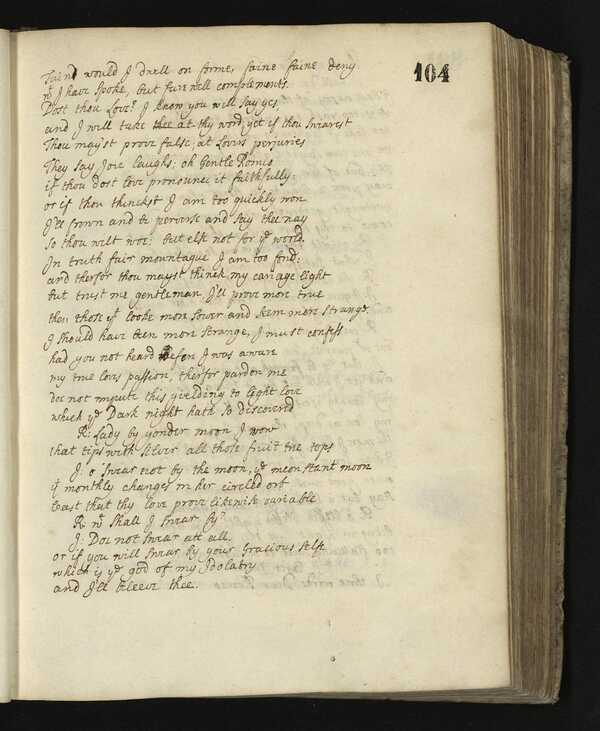 104
faind would I dwell on forme, faine faine deny
wt I have spoke, but farewell complements.
Dost thou Love? I know you will say yes
and I will take thee at thy word, yet if thou swearest
Thou mayst prove false, at Lovers perjuries
They say Jove laughs; oh Gentle Romio
if thou dost love pronounce it faithfully:
or if thou thinckst I am too quickly won
I'll frown and be perverse and say thee nay
So thou wilt woe: but else not for ye world.
In truth fair mountague I am too fond:
and therfor thou mayst thinck my cariage light
but trust me gentleman, I'll prove more true
then those yt looke more sower and seem more strange.
I should have been more strange, I must confess
had you not heard before I was aware
my true loves passion, therfor pardon me
doe not impute this yielding to light love
which ye Dark night hath so discoverd
R: Lady by yonder moon I vow
that tips with silver all those fruit tree tops
J: o swear not by the moon, ye inconstant moon
yt monthly changes in her circled orb
Least that thy love prove likewise variable
R: wt shall I swear by?
J: Doe not swear att all.
or if you will swear by your Gracious self
which is ye god of my Idolatry
and I'll beleeve thee.